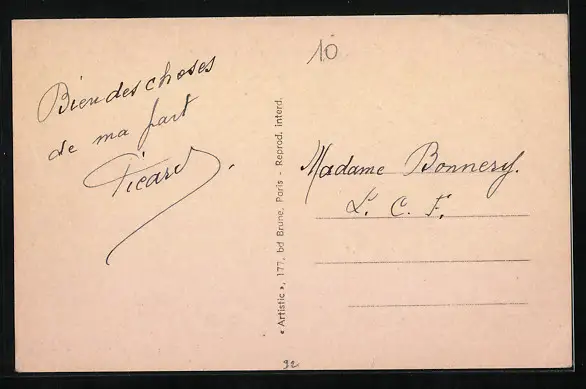 10
Bien des choses
de ma part
Picard.
Madame Bonnery.
L. C. F.
« Artistic », 177, bd Brune, Paris - Reprod. interd.
92